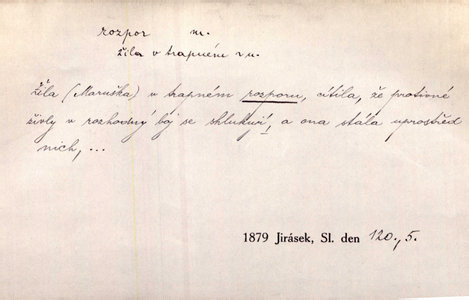 rozpor m.
žila v trapném r-u.
Žila (Maruška) v trapném rozporu, cítila, že protivné
živly v rozhodný boj se shlukují, a ona stála uprostřed
nich, ...
1879 Jirásek, Sl. den 120., 5.